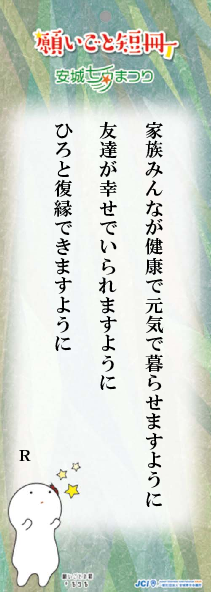 願いごと短冊
安城七夕まつり
家族みんなが健康で元気で暮らせますように
友達が幸せでいられますように
ひろと復縁できますように
R
JCI